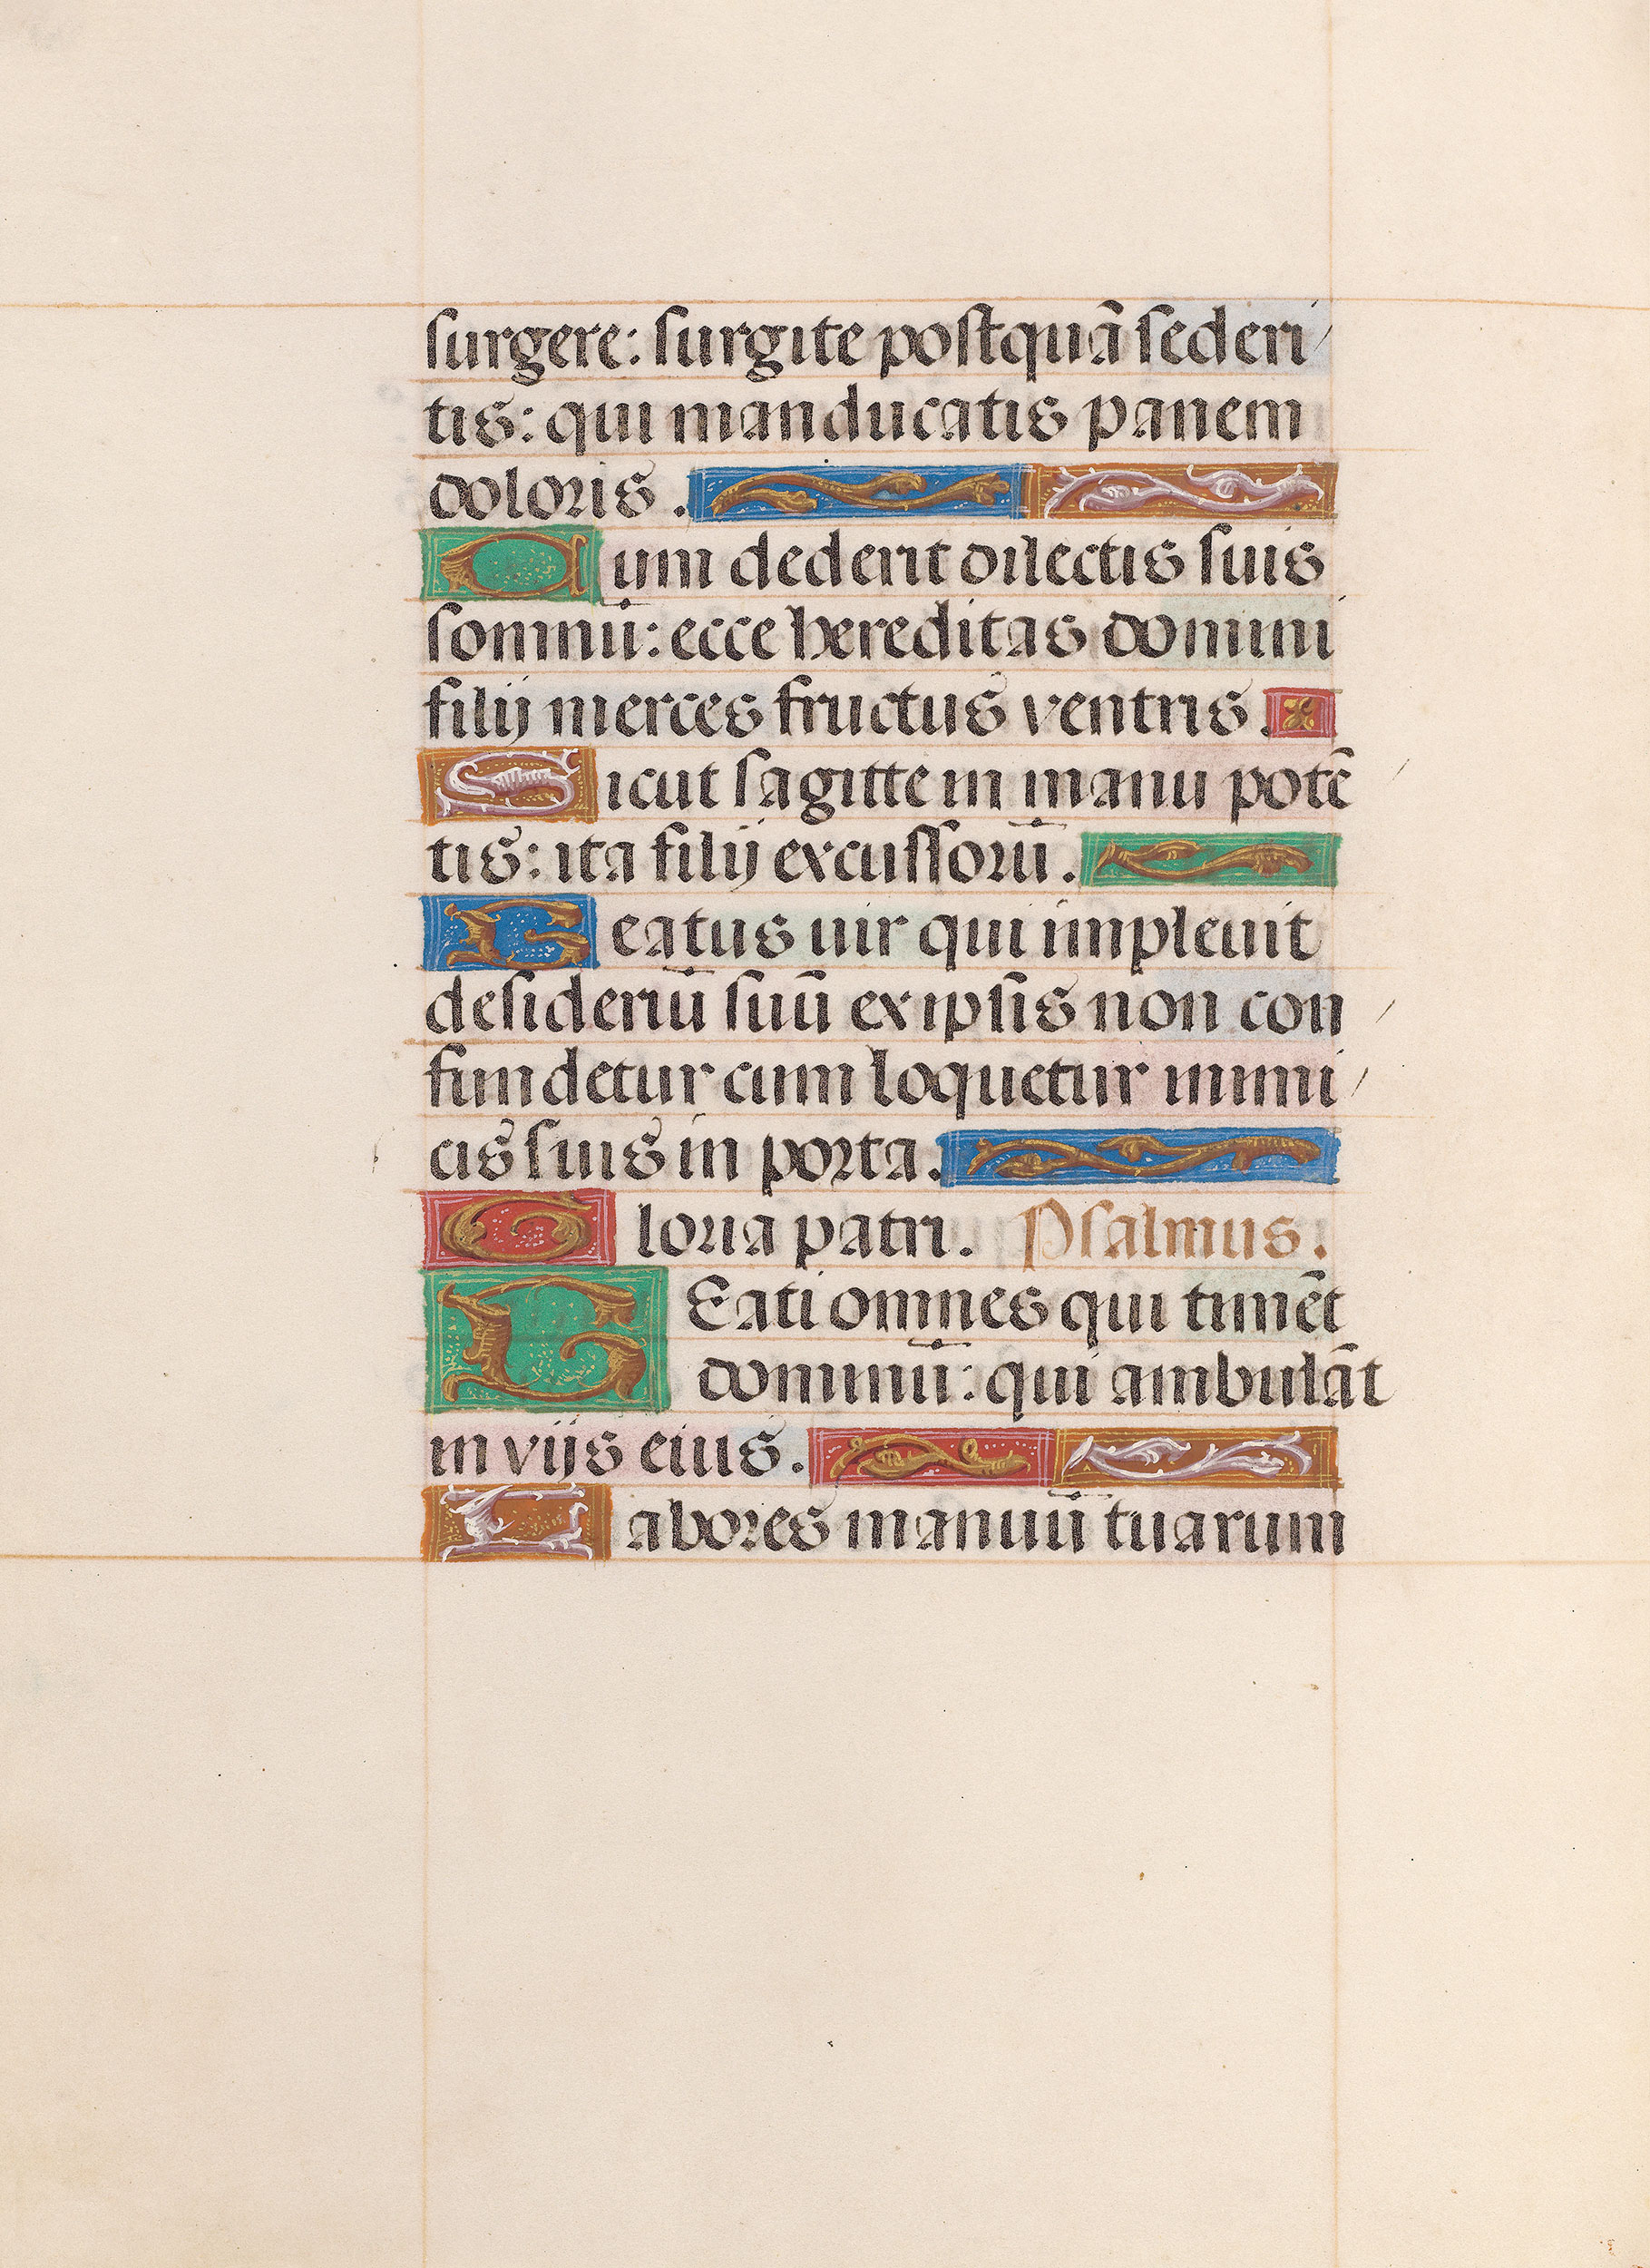 surgere: surgite postquā sederi/
tis: qui manducatis panem
doloris.
Cum dederit dilectis suis
somnū: ecce hereditas domini
filij merces fructus ventris.
Sicut sagitte in manu potē/
tis: ita filij excussorū.
Beatus uir qui impleuit
desideriū suū ex ipsis non con/
fundetur cum loquetur inimi/
cis suis in porta.
Gloria patri. Psalmus.
BEati omnes qui timēt
dominū: qui ambulāt
in viis eius.
Labores manuū tuarum